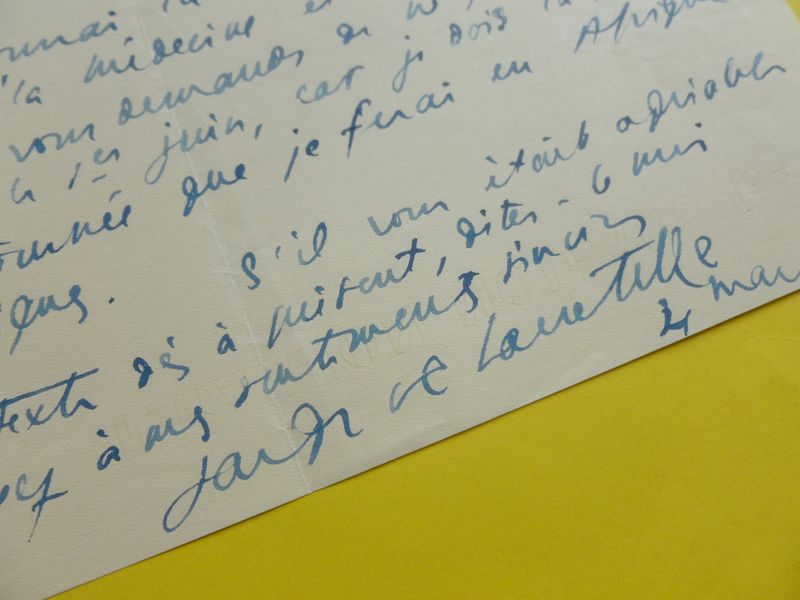 la médecine et
vous demande de
1er juin, car je dois
tournée que je ferai en Afrique
s'il vous était agréable
texte dès à présent, dites-le moi
à mes sentiments sincères
Jacques de Lacretelle
4 mars